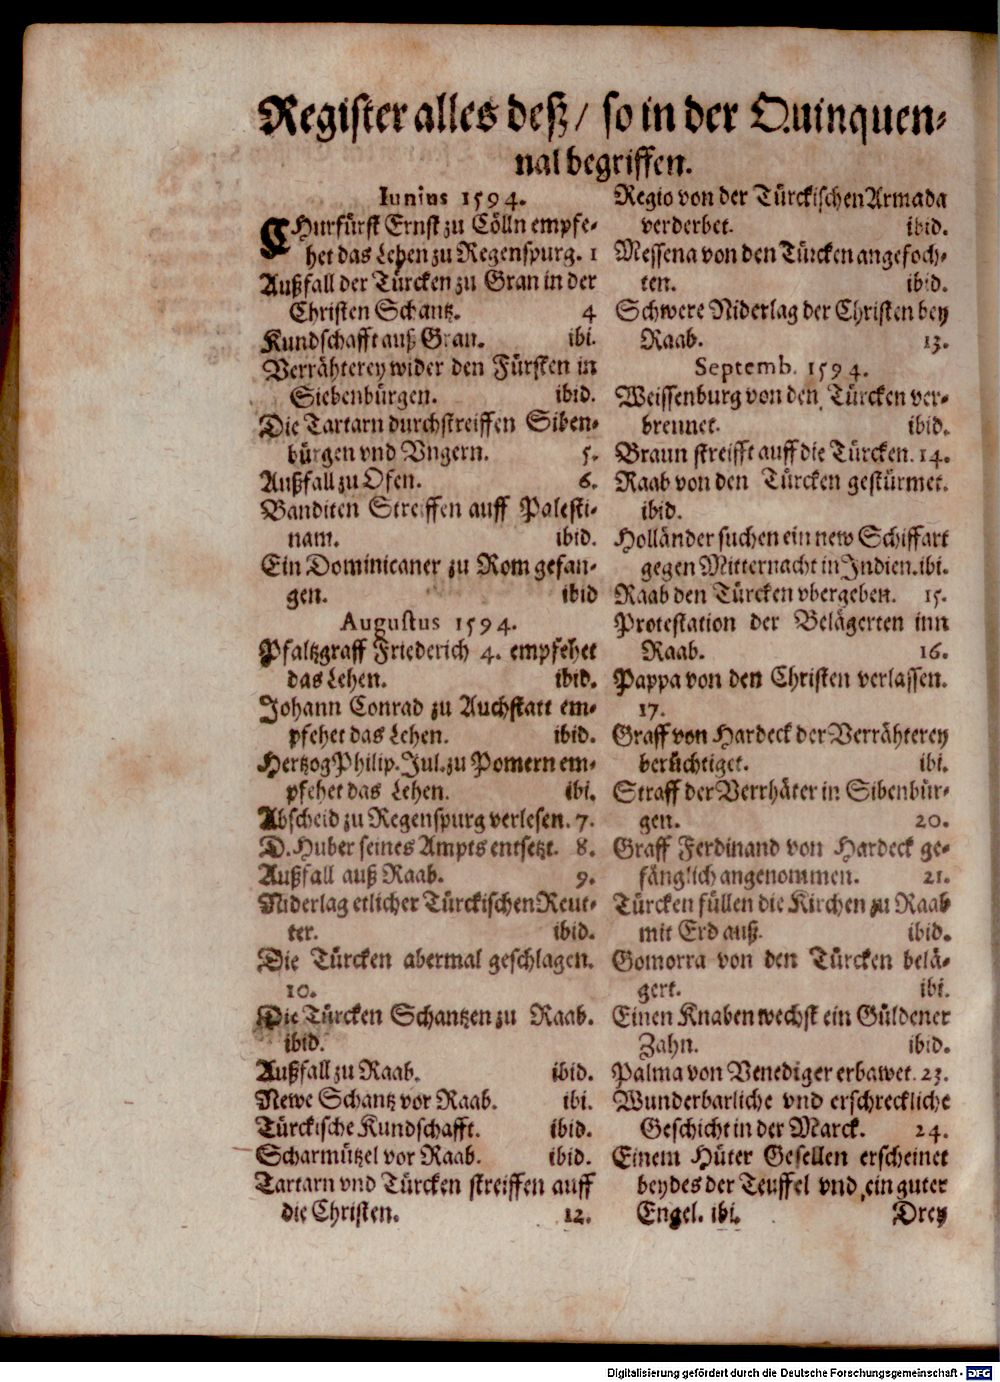 Register alles deß/ so in der Quinquen-
nal begriffen.
Iunius 1594.
CHurfürst Ernst zu Cölln empfe-
het das Lehen zu Regenspurg. 1
Außfall der Türcken zu Gran in der
Christen Schantz. 4
Kundschafft auß Gran. ibi.
Verrähterey wider den Fürsten in
Siebenbürgen. ibid.
Die Tartarn durchstreiffen Siben-
bürgen vnd Vngern. 5.
Außfall zu Ofen. 6.
Banditen Streiffen auff Palesti-
nam. ibid.
Ein Dominicaner zu Rom gefan-
gen. ibid
Augustus 1594.
Pfaltzgraff Friederich 4. empfehet
das Lehen. ibid.
Johann Conrad zu Auchstatt em-
pfehet das Lehen. ibid.
Hertzog Philip. Jul. zu Pomern em-
pfehet das Lehen. ibi.
Abscheid zu Regenspurg verlesen. 7.
D. Huber seines Ampts entsetzt. 8.
Außfall auß Raab. 9.
Niderlag etlicher Türckischen Reut-
ter. ibid.
Die Türcken abermal geschlagen.
10.
Die Türcken Schantzen zu Raab.
ibid.
Außfall zu Raab. ibid.
Newe Schantz vor Raab. ibi.
Türckische Kundschafft. ibid.
Scharmützel vor Raab. ibid.
Tartarn vnd Türcken streiffen auff
die Christen. 12.
Regio von der Türckischen Armada
verderbet. ibid.
Messena von den Türcken angefoch-
ten. ibid.
Schwere Niderlag der Christen bey
Raab. 13.
Septemb. 1594.
Weissenburg von den Türcken ver-
brennet. ibid.
Braun streifft auff die Türcken. 14.
Raab von den Türcken gestürmet.
ibid.
Holländer suchen ein new Schiffart
gegen Mitternacht in Indien. ibi.
Raab den Türcken vbergeben. 15.
Protestation der Belägerten inn
Raab. 16.
Pappa von den Christen verlassen.
17.
Graff von Hardeck der Verrähterey
berüchtiget. ibi.
Straff der Verrhäter in Sibenbür-
gen. 20.
Graff Ferdinand von Hardeck ge-
fänglich angenommen. 21.
Türcken füllen die Kirchen zu Raab
mit Erd auß. ibid.
Gomorra von den Türcken belä-
gert. ibi.
Einen Knaben wechst ein Güldener
Zahn. ibid.
Palma von Venediger erbawet. 23.
Wunderbarliche vnd erschreckliche
Geschicht in der Marck. 24.
Einem Hüter Gesellen erscheinet
beydes der Teuffel vnd ein guter
Engel. ibi. Drey
Digitalisierung gefördert durch die Deutsche Forschungsgemeinschaft - DFG